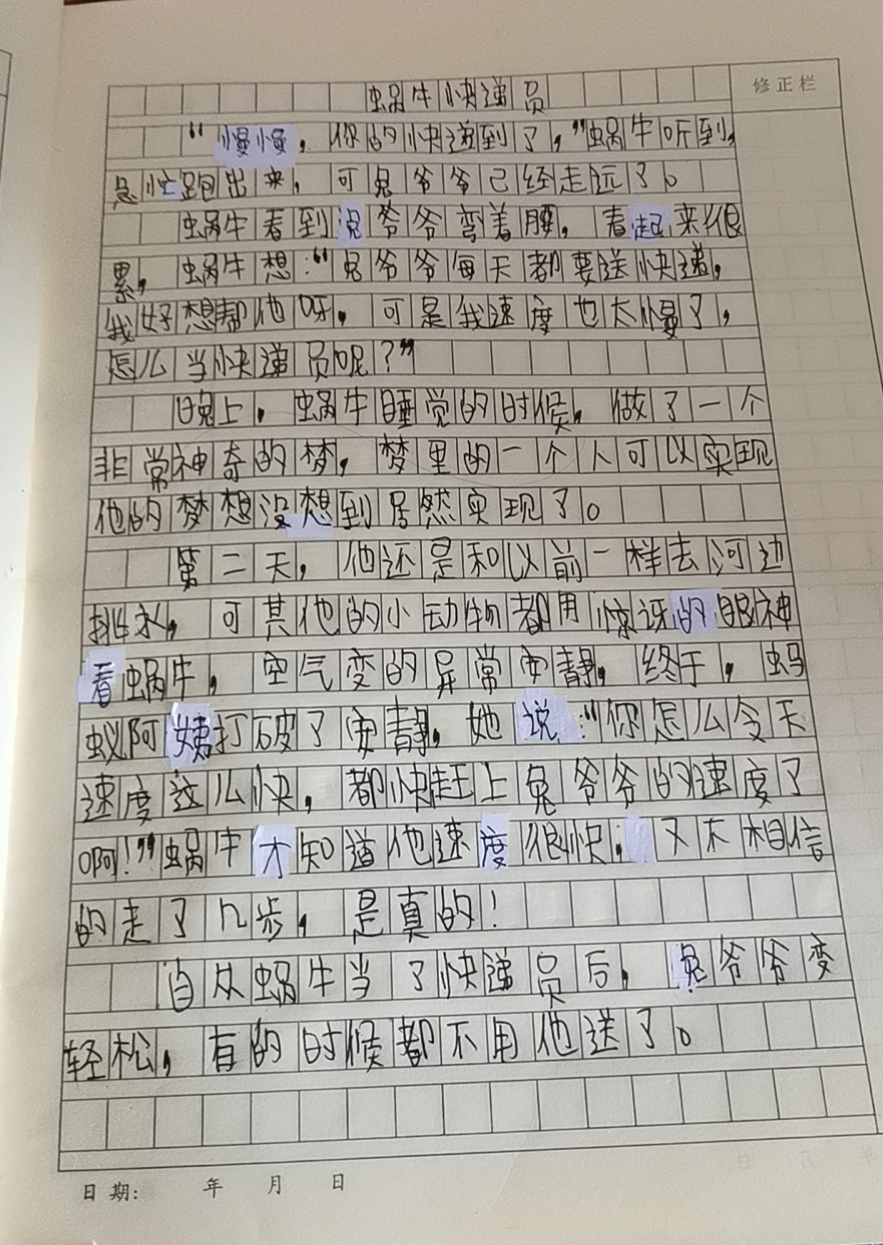 蜗牛快递员
修正栏
“慢慢，你的快递到了，”蜗牛听到，
急忙跑出来，可兔爷爷已经走远了。
蜗牛看到兔爷爷弯着腰，看起来很
累，蜗牛想：“兔爷爷每天都要送快递，
我好想帮他呀，可是我速度也太慢了，
怎么当快递员呢？”
晚上，蜗牛睡觉的时候，做了一个
非常神奇的梦，梦里的一个人可以实现
他的梦想没想到居然实现了。
第二天，他还是和以前一样去河边
挑水，可其他的小动物都用惊讶的眼神
看蜗牛，空气变的异常安静，终于，蚂
蚁阿姨打破了安静，她说：“你怎么今天
速度这么快，都快赶上兔爷爷的速度了
啊！”蜗牛才知道他速度很快，又不相信
的走了几步，是真的！
自从蜗牛当了快递员后，兔爷爷变
轻松，有的时候都不用他送了。
日期： 年 月 日